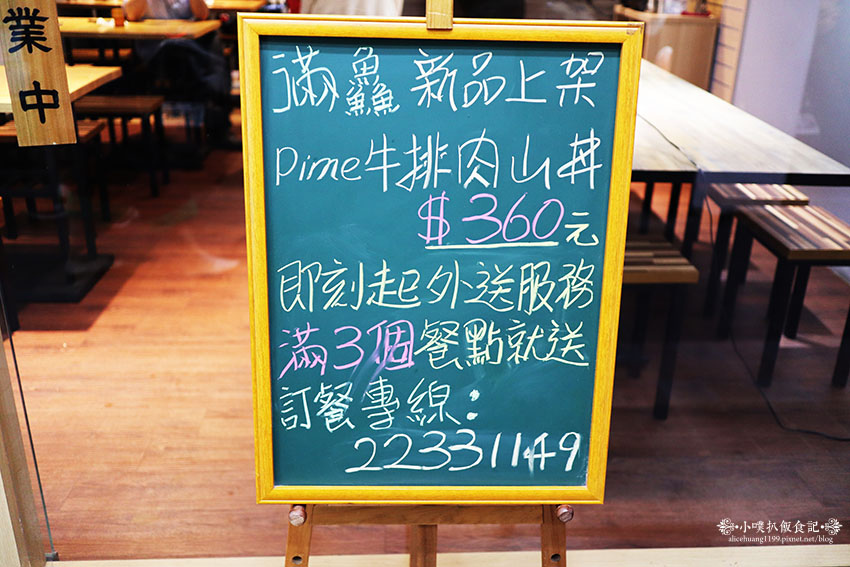 業中
滿鱻 新品上架
Pime牛排肉山丼
$360元
即刻起外送服務
滿3個餐點就送
訂餐專線:
22331149
小噗扒飯食記
alicehuang1199.pixnet.net/blog